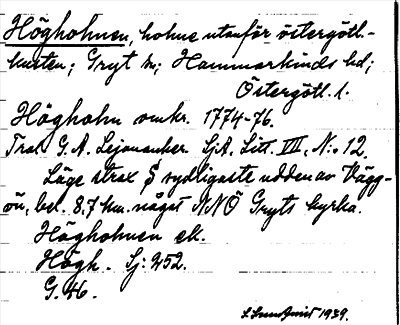 Högholmen, holme utanför östergötl.-
kusten; Gryt sn; Hammarkinds hd;
Östergötl. l.
Högholm omkr. 1774-76.
Trol. G. A. Lejonanker. SjA. Litt. VIII, N:o 12.
Läge strax S sydligaste udden av Vägg-
ön, bel. 8,7 km. något NNÖ Gryts kyrka.
Högholmen ek.
Högh. Sj: 252.
G. 46.
1939.